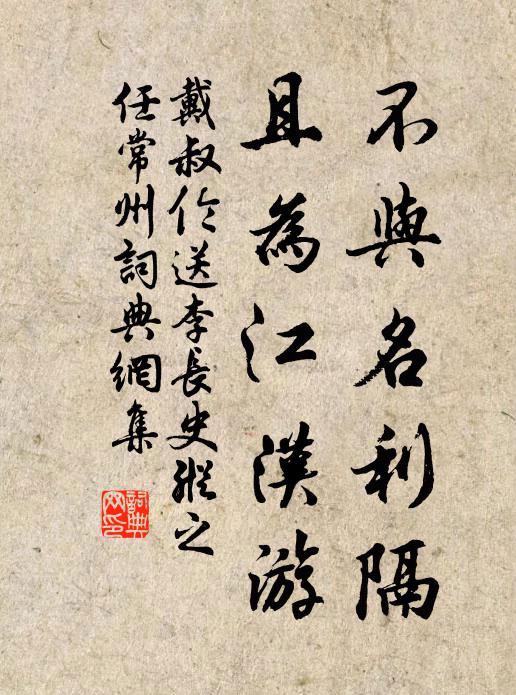 不與名利隔
且為江漢游
戴叔倫送李長史縱之
任常州詞典網集
詞典网印